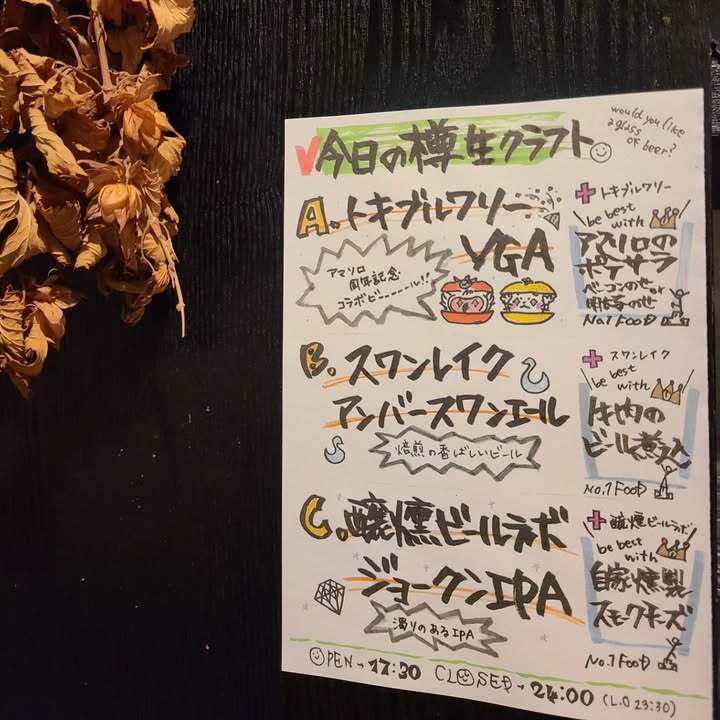 今日の樽生クラフト
would you like
a glass
of beer?
A. トキブルワリー
VGA
アマソロ
周年記念
コラボビーーーール!!
+ トキブルワリー
be best
with
アマソロの
ポテサラ
ベーコンのせor
明太のせ
No.1 FOOD
B. スワンレイク
アンバースワンエール
焙煎の香ばしいビール
+ スワンレイク
be best
with
牛肉の
ビール煮込
No.1 FOOD
C. 醸燻ビールラボ
ジョークンIPA
濁りのあるIPA
+ 醸燻ビールラボ
be best
with
自家燻製
スモークチーズ
No.1 FOOD
OPEN → 17:30 CLOSED → 24:00 (L.O 23:30)